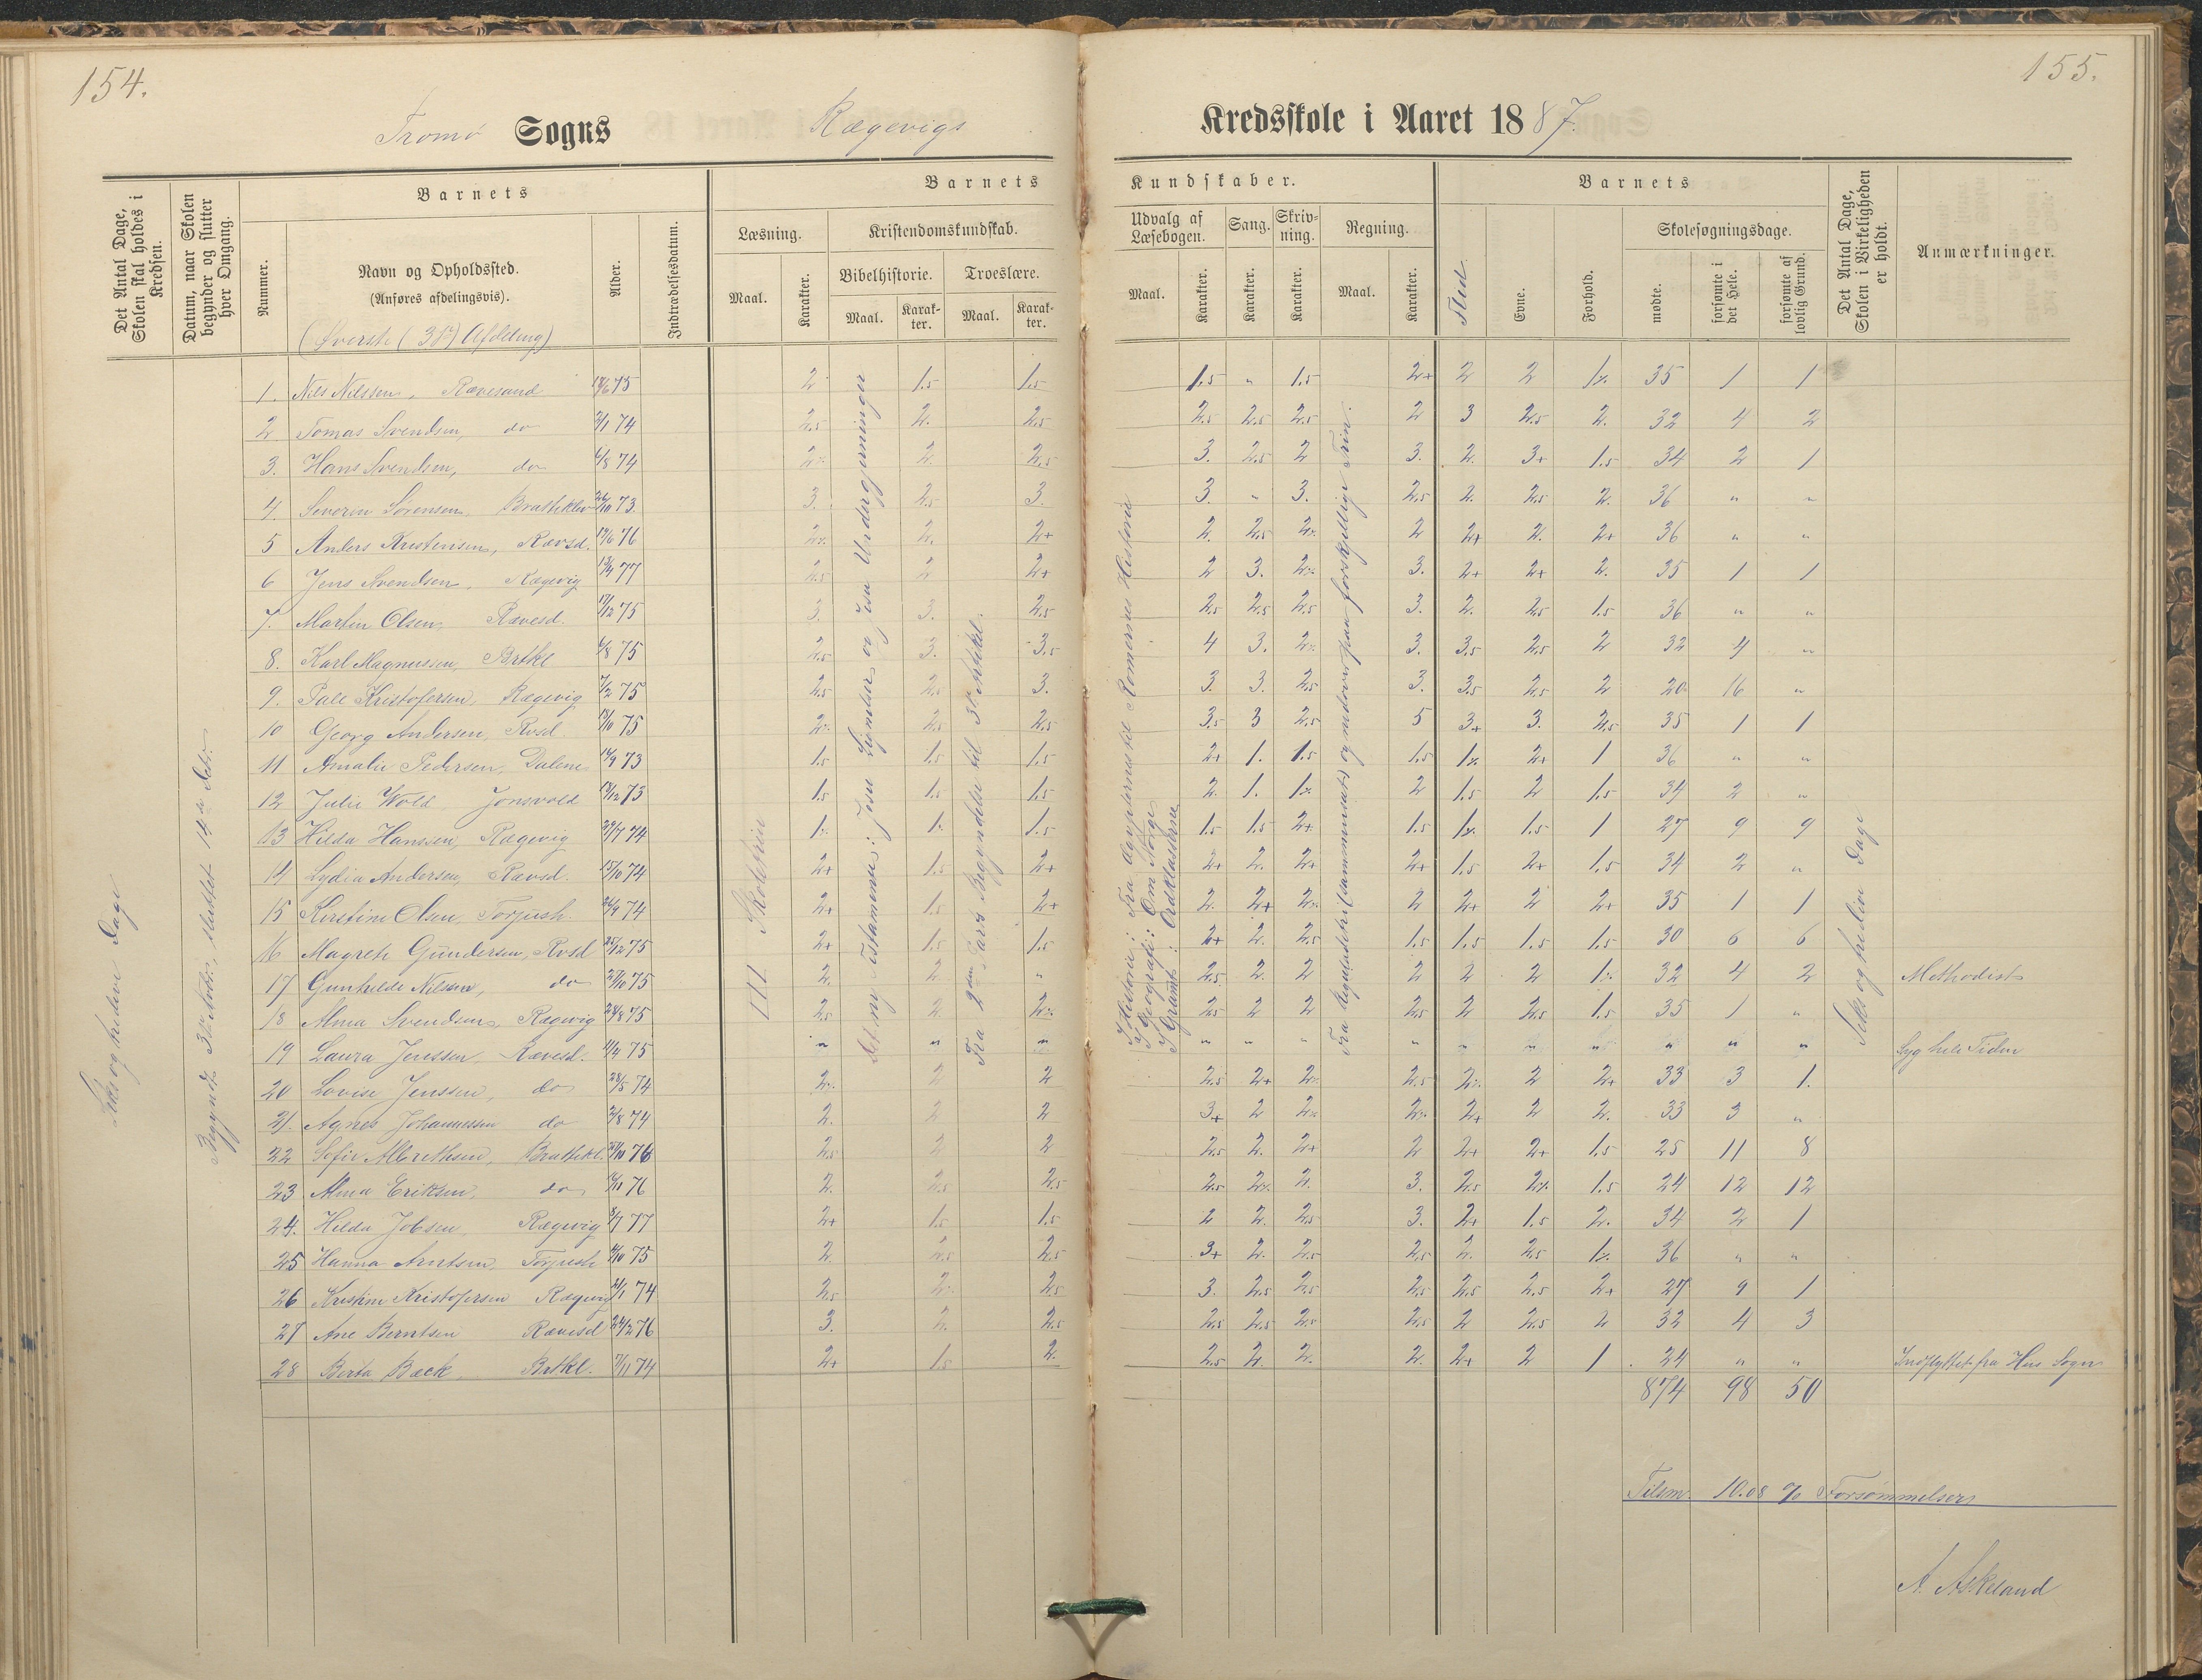 154.
Tromø Sogns Rægevigs
Kredsskole i Aaret 1887.
155.
Det Antal Dage, Skolen skal holdes i Kredsen.
Datum, naar Skolen begynder og slutter hver Omgang.
Barnets
Nummer.
Navn og Opholdssted.
(Anføres afdelingsvis).
(Øverste (3die) Afdeling)
Alder.
Indtrædelsesdatum.
Barnets Kundskaber.
Læsning.
Maal. Karakter.
Kristendomskundskab.
Bibelhistorie. Troeslære.
Maal. Karakter. Maal. Karakter.
Udvalg af Læsebogen.
Maal. Karakter.
Sang. Karakter.
Skrivning. Karakter.
Regning.
Maal. Karakter.
Barnets
Flid. Evne. Forhold.
Skolesøgningsdage.
mødte. forsømte i det Hele. forsømte af lovlig Grund.
Det Antal Dage, Skolen i Virkeligheden er holdt.
Anmærkninger.
Seks og tredive Dage
III Skoletrin
Seks og tredive Dage
I Geografi: Om Norge
1. Nils Nilssen, Rævesand 75 2 1.5 1.5 1.5 " 1.5 2+ 2 2 1⁒ 35 1 1
2 Tomas Svendsen, do 2/1 74 2.5 2. 2.5 2.5 2.5 2.5 2 3 2.5 2. 32 4 2
3. Hans Svendsen, do 6/8 74 2⁒ 2. 2.5 3. 2.5 2 3. 2. 3+ 1.5 34 2 1
4. Severin Sørensen Brattekleiv 73. 3. 2.5 3. 3. " 3. 2.5 2. 2.5 2. 36 " "
5 Anders Kristensen, Rævsd. 76 2⁒ 2. 2+ 2. 2.5 2⁒ 2 2+ 2. 2+ 36 " "
6 Jens Svendsen, Rægevig 77 2.5 2 2+ 2 3. 2⁒ 3. 2+ 2+ 2. 35 1 1
7. Martin Olsen, Rævesd. 17/12 75 3. 3. 2.5 2.5 2.5 2.5 3. 2. 2.5 1.5 36 " "
8. Karl Magnussen Brtkl 75 2.5 3. 3.5 4 3. 2⁒ 3. 3.5 2.5 2 32 4 "
9. Pale Kristofersen, Rægevig 7/2 75 2.5 2.5 3. 3. 3. 2.5 3. 3.5 2.5 2 20 16 "
10 Georg Andersen, Rvsd. 75 2⁒ 2.5 2.5 3.5 3 2.5 5 3+ 3. 2.5 35 1 1
11 Amalie Pedersen, Dalene 14/9 73 1.5 1.5 1.5 2+ 1. 1.5 1.5 1⁒ 2+ 1 36 " "
12 Julie Wold Jonsvold 73 1.5 1.5 1.5 2. 1. 1⁒ 2 1.5 2 1.5 34 2 "
13 Hilda Hanssen, Rægevig 29/7 74 1⁒ 1⁒ 1.5 1.5 1.5 2+ 1.5 1⁒ 1.5 1 27 9 9
14 Lydia Andersen, Rævsd. 15/10 74 2+ 1.5 2+ 2+ 2. 2+ 2+ 1.5 2+ 1.5 34 2 "
15 Kirstine Olsen, Torjush. 26/9 74 2+ 1.5 2+ 2. 2+ 2⁒ 2 2+ 2 2+ 35 1 1
16 Magreth Gundersen, Rvsd 25/12 75 2+ 1.5 1.5 2+ 2. 2.5 1.5 1.5 1.5 1.5 30 6 6
17 Gunhilde Nilsen, do 75 2. 2. " 2.5 2. 2 2 2 2 1⁒ 32 4 2 Methodist
18 Alma Svendsen, Rægevig 24/8 75 2.5 2. 2⁒ 2.5 2 2 2.5 2 2.5 1.5 35 1 "
19 Laura Jenssen, Rævesd. 75 " " " " " " " " " " " " " Syg hele Tiden
20 Lovise Jenssen, do 28/5 74 2⁒ 2 2 2.5 2+ 2⁒ 2.5 2⁒ 2 2+ 33 3 1.
21. Agnes Johannessen do 2/8 74 2. 2 2 3+ 2 2⁒ 2⁒ 2+ 2 2. 33 3 "
22 Sofie Albrethsen, Brattekl. 76 2.5 2 2 2.5 2. 2+ 2 2+ 2+ 1.5 25 11 8
23 Alma Eriksen, do 76 2. 2.5 2.5 2.5 2⁒ 2. 3. 2.5 2⁒ 1.5 24 12 12
24. Hilda Jobsen Rægevig 3/7 77 2+ 1.5 1.5 2 2. 2.5 3. 2+ 1.5 2. 34 2 1
25 Hanna Arntsen, Torjush 75 2. 2.5 2.5 3+ 2. 2.5 2.5 2. 2.5 1⁒ 36 " "
26 Kristine Kristofersen Rægevig 74 2.5 2⁒ 2.5 3. 2.5 2.5 2.5 2.5 2.5 2+ 27 9 1
27 Ane Berntsen Rævesd 24/2 76 3. 2. 2.5 2.5 2.5 2.5 2.5 2 2.5 2 32 4 3
28 Berta Bæck, Brtkl. 7/11 74 2+ 1.5 2. 2.5 2. 2. 2. 2+ 2 1 24 " " Indflyttet fra Sogn
874 98 50
Tilsm. 10.08 % Forsømmelser
A. Askeland